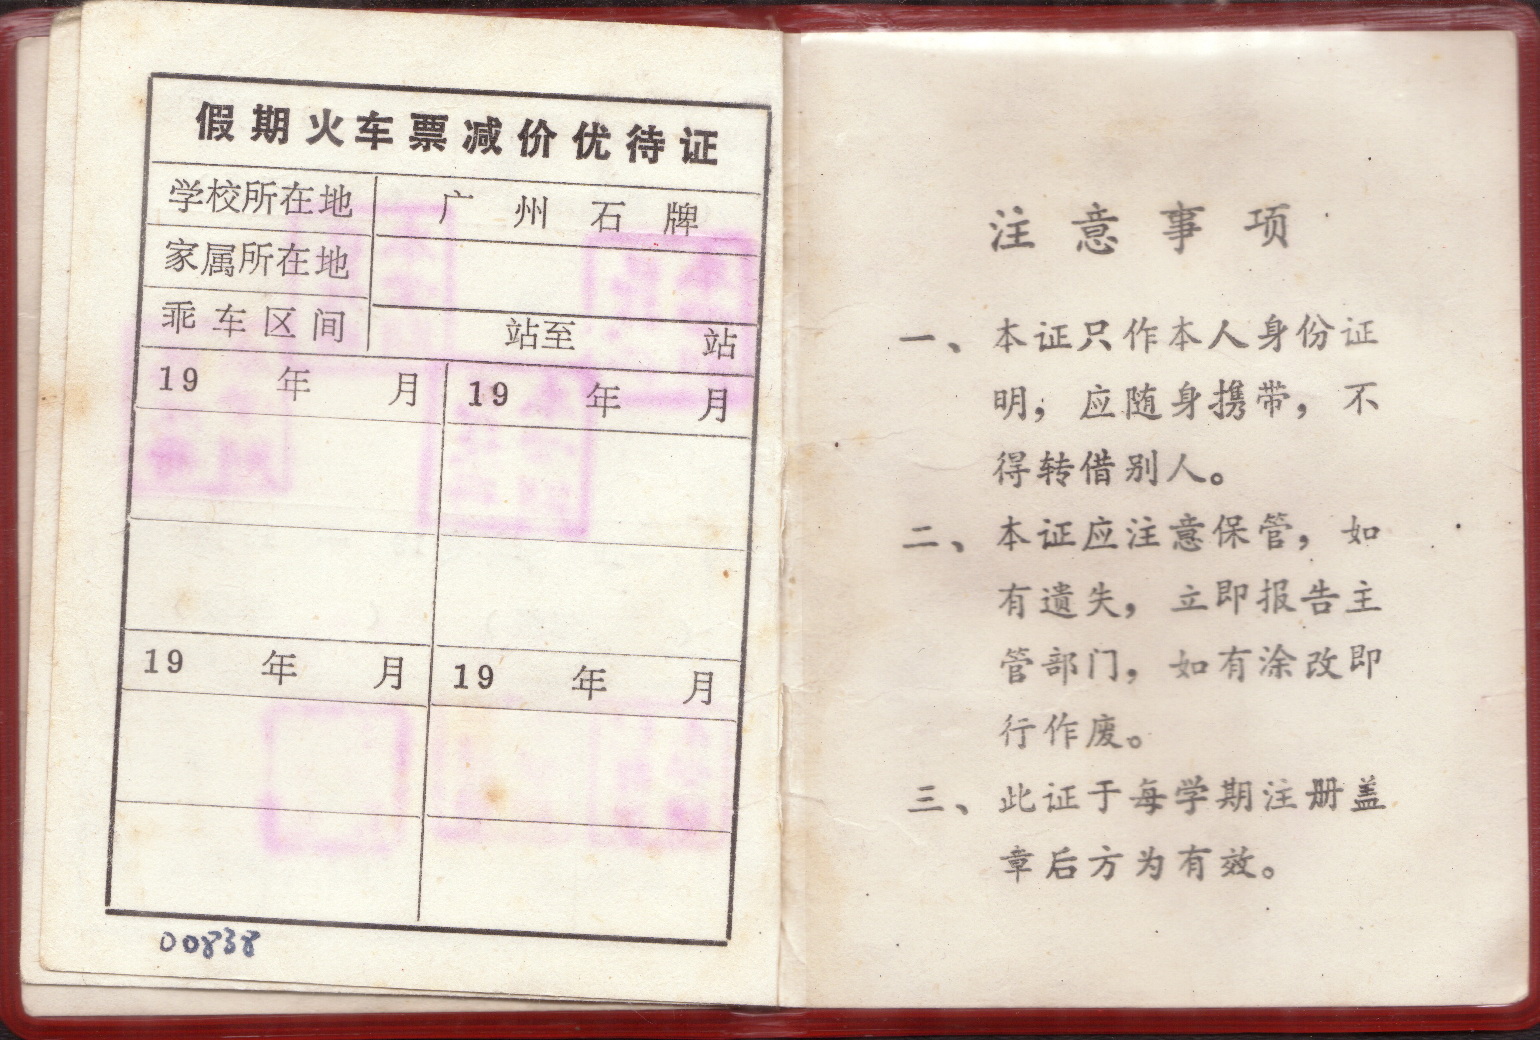 假期火车票减价优待证
学校所在地 广州石牌
家属所在地
乖车区间 站至 站
19 年 月 19 年 月
19 年 月 19 年 月
00838
注意事项
一、本证只作本人身份证
明，应随身携带，不
得转借别人。
二、本证应注意保管，如
有遗失，立即报告主
管部门，如有涂改即
行作废。
三、此证于每学期注册盖
章后方为有效。